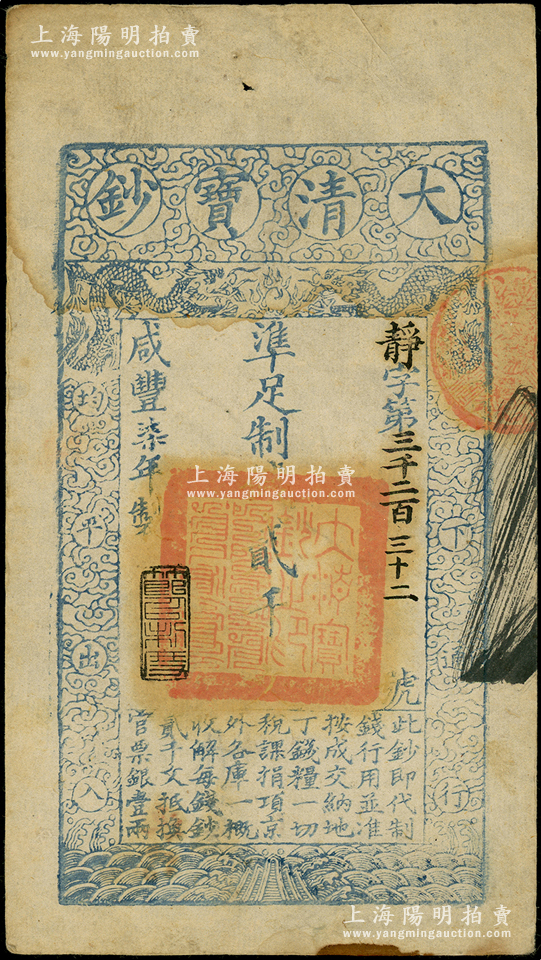 上海陽明拍賣
www.yangmingauction.com
大清寶鈔
天下通行
均平出入
靜字第三千二百三十二號
準足制錢貳千文
咸豐柒年製
大清寶鈔之印
上海陽明拍賣
www.yangmingauction.com
此鈔即代制
錢行用並准
按成交納地
丁錢糧一切
稅課捐項京
外各庫一概
收解每錢鈔
貳千文抵換
官票銀壹兩
上海陽明拍賣
www.yangmingauction.com